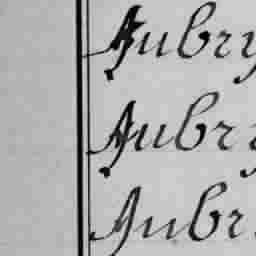 Aubry
Aubry
Aubr